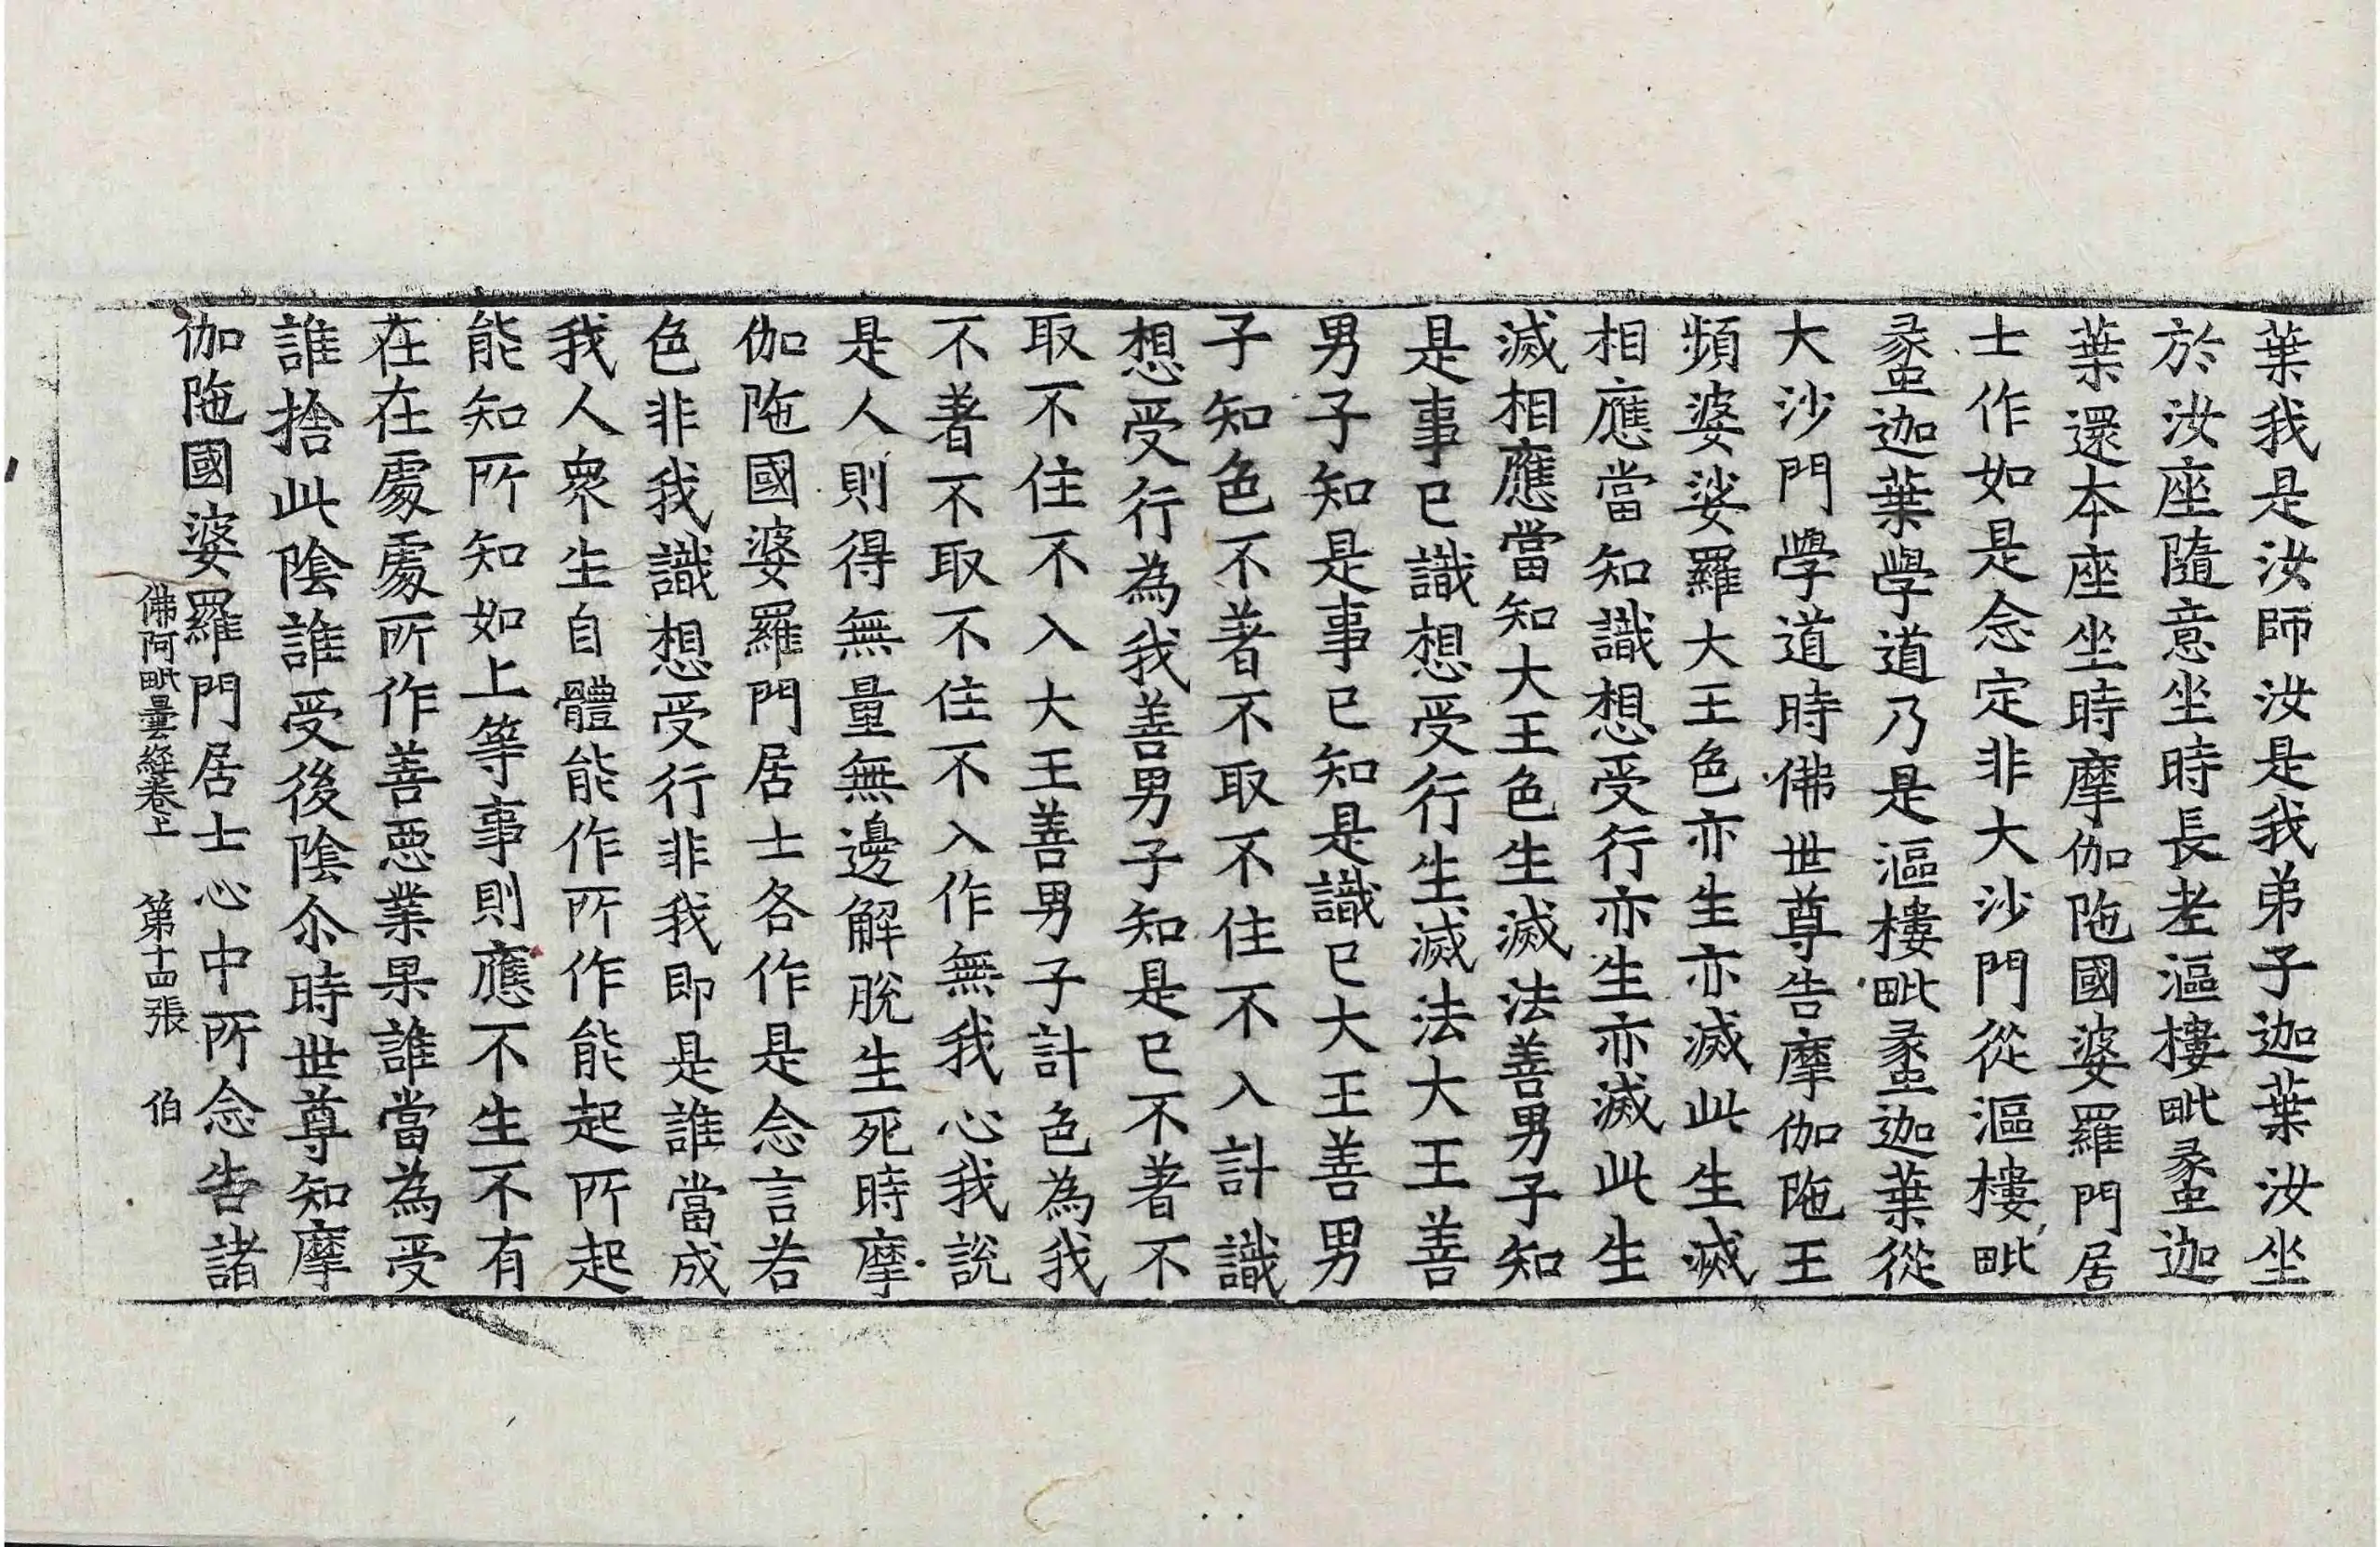 葉我是汝師汝是我弟子迦葉汝坐
於汝座隨意坐時長老漚樓毗蠡迦
葉還本座坐時摩伽陁國婆羅門居
士作如是念定非大沙門從漚樓毗
蠡迦葉學道乃是漚樓毗蠡迦葉從
大沙門學道時佛世尊告摩伽陁王
頻婆娑羅大王色亦生亦滅此生滅
相應當知識想受行亦生亦滅此生
滅相應當知大王色生滅法善男子知
是事已識想受行生滅法大王善
男子知是事已知是識已大王善男
子知色不著不取不住不入計識
想受行為我善男子知是已不著不
取不住不入大王善男子計色為我
不著不取不住不入作無我心我說
是人則得無量無邊解脫生死時摩
伽陁國婆羅門居士各作是念言若
色非我識想受行非我即是誰當成
我人衆生自體能作所作能起所起
能知所知如上等事則應不生不有
在在處處所作善惡業果誰當為受
誰捨此陰誰受後陰尒時世尊知摩
伽陁國婆羅門居士心中所念告諸
佛阿毗曇經卷上 第十四張 伯